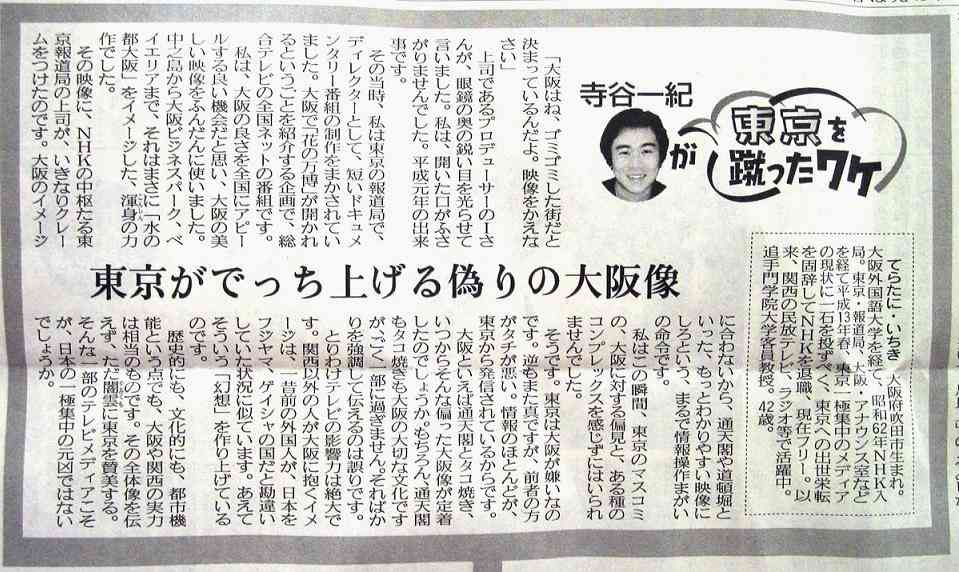 寺谷一紀
が
東京を
蹴ったワケ
てらたに・いちき　大阪府吹田市生まれ。
大阪外国語大学を経て、昭和62年ＮＨＫ入
局。東京・報道局、大阪・アナウンス室など
を経て平成13年春、東京一極集中のメディア
の現状に一石を投ずべく、東京への出世栄転
を固辞してＮＨＫを退職、現在フリー。以
来、関西の民放テレビ、ラジオ等で活躍中。
追手門学院大学客員教授。42歳。
東京がでっち上げる偽りの大阪像
「大阪はね、ゴミゴミした街だと
決まっているんだよ。映像をかえな
さい」
上司であるプロデューサーのＩさ
んが、眼鏡の奥の鋭い目を光らせて
言いました。私は、開いた口がふさ
がりませんでした。平成元年の出来
事です。
その当時、私は東京の報道局で、
ディレクターとして、短いドキュメ
ンタリー番組の制作をまかされてい
ました。大阪で「花の万博」が開かれ
るということを紹介する企画で、総
合テレビの全国ネットの番組です。
私は、大阪の良さを全国にアピー
ルする良い機会だと思い、大阪の美
しい映像をふんだんに使いました。
中之島から大阪ビジネスパーク、ベ
イエリアまで、それはまさに「水の
都大阪」をイメージした、渾身の力
作でした。
その映像に、ＮＨＫの中枢たる東
京報道局の上司が、いきなりクレー
ムをつけたのです。大阪のイメージ
に合わないから、通天閣や道頓堀と
いった、もっとわかりやすい映像に
しろという、まるで情報操作まがい
の命令です。
私はこの瞬間、東京のマスコミ
の、大阪に対する偏見と、ある種の
コンプレックスを感じずにはいられ
ませんでした。
そうです。東京は大阪が嫌いなの
です。逆もまた真ですが、前者の方
がタチが悪い。情報のほとんどが、
東京から発信されているからです。
大阪といえば通天閣とタコ焼き、
いつからそんな偏った大阪像が定着
したのでしょうか。もちろん、通天閣
もタコ焼きも大阪の大切な文化です
が、ごく一部に過ぎません。そればか
りを強調して伝えるのは誤りです。
とりわけテレビの影響力は絶大で
す。関西以外の人が大阪に抱くイメ
ージは、一昔前の外国人が、日本を
フジヤマ、ゲイシャの国だと勘違い
していた状況に似ています。あえて
そういう「幻想」を作り上げている
のです。
歴史的にも、文化的にも、都市機
能という点でも、大阪や関西の実力
は相当のものです。その全体像を伝
えず、ただ闇雲に東京を賛美する。
そんな一部のテレビメディアこそ
が、日本の一極集中の元凶ではない
でしょうか。